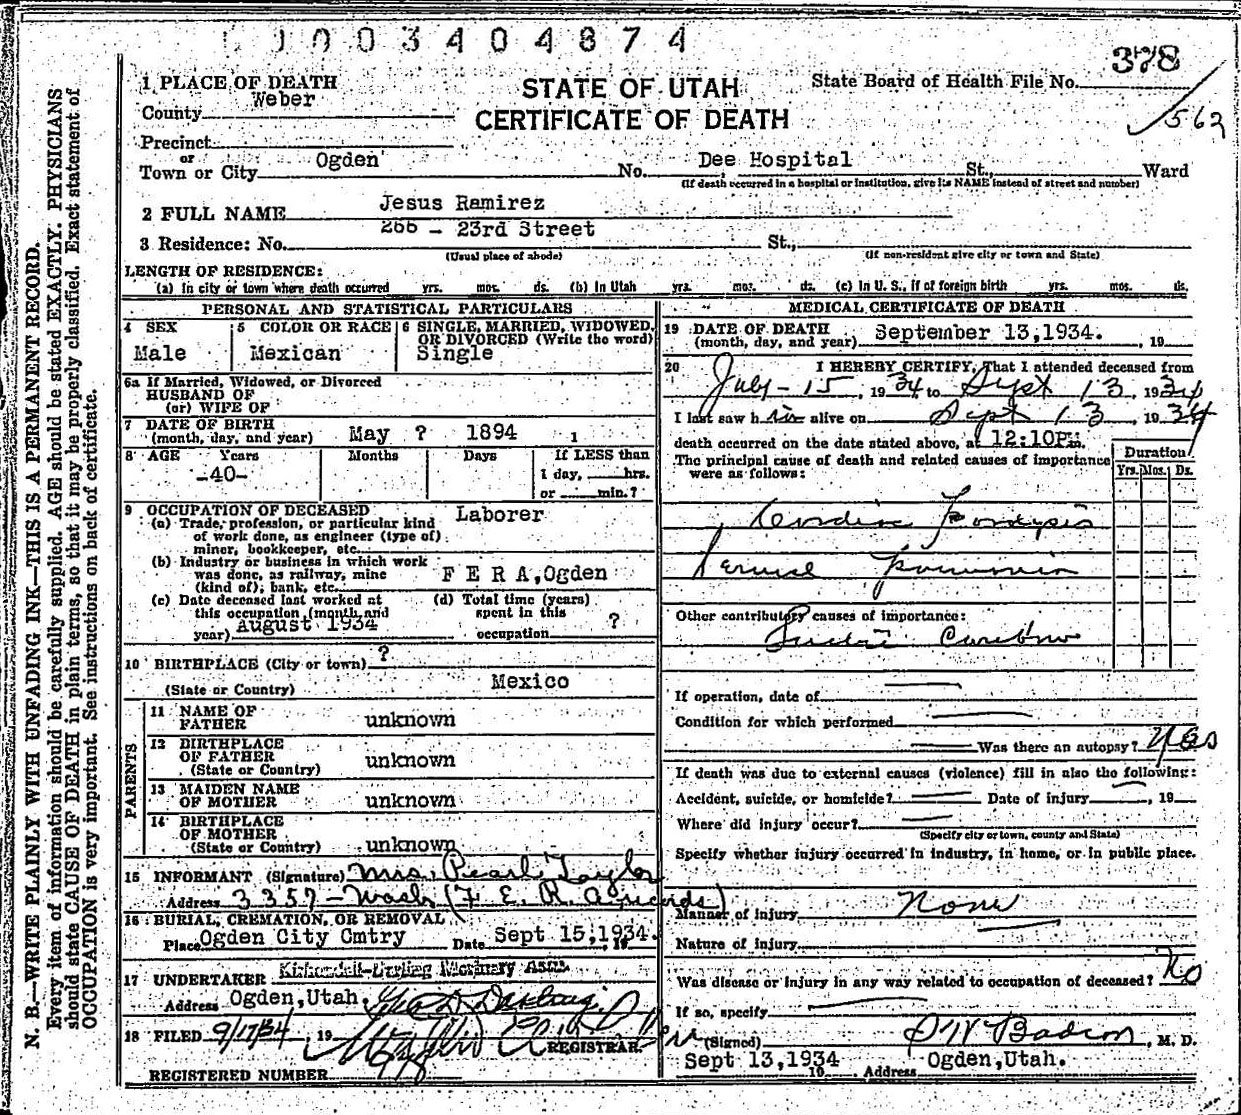 0 0 0 3 4 0 4 8 7 4
378
562
STATE OF UTAH
CERTIFICATE OF DEATH
State Board of Health File No.
1 PLACE OF DEATH
County Weber
Precinct
or
Town or City Ogden No. Dee Hospital St., Ward
(If death occurred in a hospital or institution, give its NAME instead of street and number)
2 FULL NAME Jesus Ramirez
3 Residence: No. 266 - 23rd Street St.,
(Usual place of abode) (If non-resident give city or town and State)
LENGTH OF RESIDENCE:
(a) In city or town where death occurred yrs. mos. ds. (b) In Utah yrs. mos. ds. (c) In U. S., if of foreign birth yrs. mos. ds.
PERSONAL AND STATISTICAL PARTICULARS
4 SEX Male
5 COLOR OR RACE Mexican
6 SINGLE, MARRIED, WIDOWED, OR DIVORCED (Write the word) Single
6a If Married, Widowed, or Divorced
HUSBAND OF
(or) WIFE OF
7 DATE OF BIRTH
(month, day, and year) May ? 1894
8 AGE Years Months Days If LESS than
-40- 1 day, hrs.
or min.?
9 OCCUPATION OF DECEASED Laborer
(a) Trade, profession, or particular kind
of work done, as engineer (type of)
miner, bookkeeper, etc.
(b) Industry or business in which work
was done, as railway, mine
(kind of); bank, etc. F E R A, Ogden
(c) Date deceased last worked at
this occupation (month and
year) August 1934
(d) Total time (years)
spent in this
occupation ?
10 BIRTHPLACE (City or town) ?
(State or Country) Mexico
PARENTS
11 NAME OF
FATHER unknown
12 BIRTHPLACE
OF FATHER unknown
(State or Country)
13 MAIDEN NAME
OF MOTHER unknown
14 BIRTHPLACE
OF MOTHER
(State or Country) unknown
15 INFORMANT (Signature) Mrs. Pearl Taylor
Address 3357 - Wash (F. E. R. A records)
16 BURIAL, CREMATION, OR REMOVAL
Place Ogden City Cmtry Date Sept 15, 1934. 19
17 UNDERTAKER Kirkendall-Darling Mortuary Assn.
Address Ogden, Utah.
18 FILED 9/17/34, 19
REGISTRAR.
REGISTERED NUMBER 378
MEDICAL CERTIFICATE OF DEATH
19 DATE OF DEATH
(month, day, and year) September 13, 1934. , 19
20 I HEREBY CERTIFY, That I attended deceased from
July - 15, 1934 to Sept 13, 1934
I last saw him alive on Sept 13, 1934
death occurred on the date stated above, at 12:10P m.
The principal cause of death and related causes of importance
were as follows:
Duration
Yrs. Mos. Ds.
Other contributory causes of importance:
If operation, date of
Condition for which performed
Was there an autopsy? Yes
If death was due to external causes (violence) fill in also the following:
Accident, suicide, or homicide? Date of injury , 19
Where did injury occur?
(Specify city or town, county and State)
Specify whether injury occurred in industry, in home, or in public place.
Manner of injury None
Nature of injury
Was disease or injury in any way related to occupation of deceased? No
If so, specify
(Signed) , M. D.
Sept 13, 1934 19 , Address Ogden, Utah.
N. B.—WRITE PLAINLY WITH UNFADING INK—THIS IS A PERMANENT RECORD.
Every item of information should be carefully supplied. AGE should be stated EXACTLY. PHYSICIANS
should state CAUSE OF DEATH in plain terms, so that it may be properly classified. Exact statement of
OCCUPATION is very important. See instructions on back of certificate.